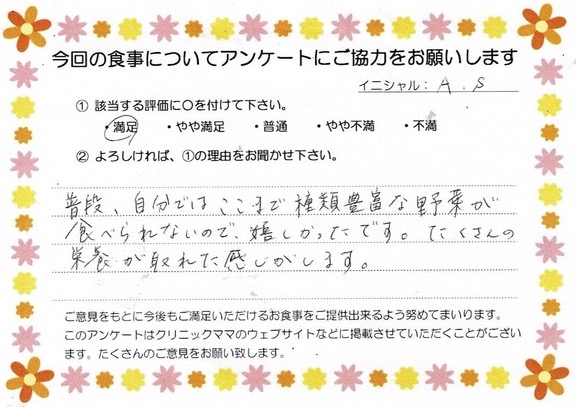 今回の食事についてアンケートにご協力をお願いします
イニシャル：A.S
① 該当する評価に〇を付けて下さい。
・満足 ・やや満足 ・普通 ・やや不満 ・不満
② よろしければ、①の理由をお聞かせ下さい。
普段、自分ではここまで種類豊富な野菜が
食べられないので、嬉しかったです。たくさんの
栄養が取れた感じがします。
ご意見をもとに今後もご満足いただけるお食事をご提供出来るよう努めてまいります。
このアンケートはクリニックママのウェブサイトなどに掲載させていただくことがござい
ます。たくさんのご意見をお願い致します。